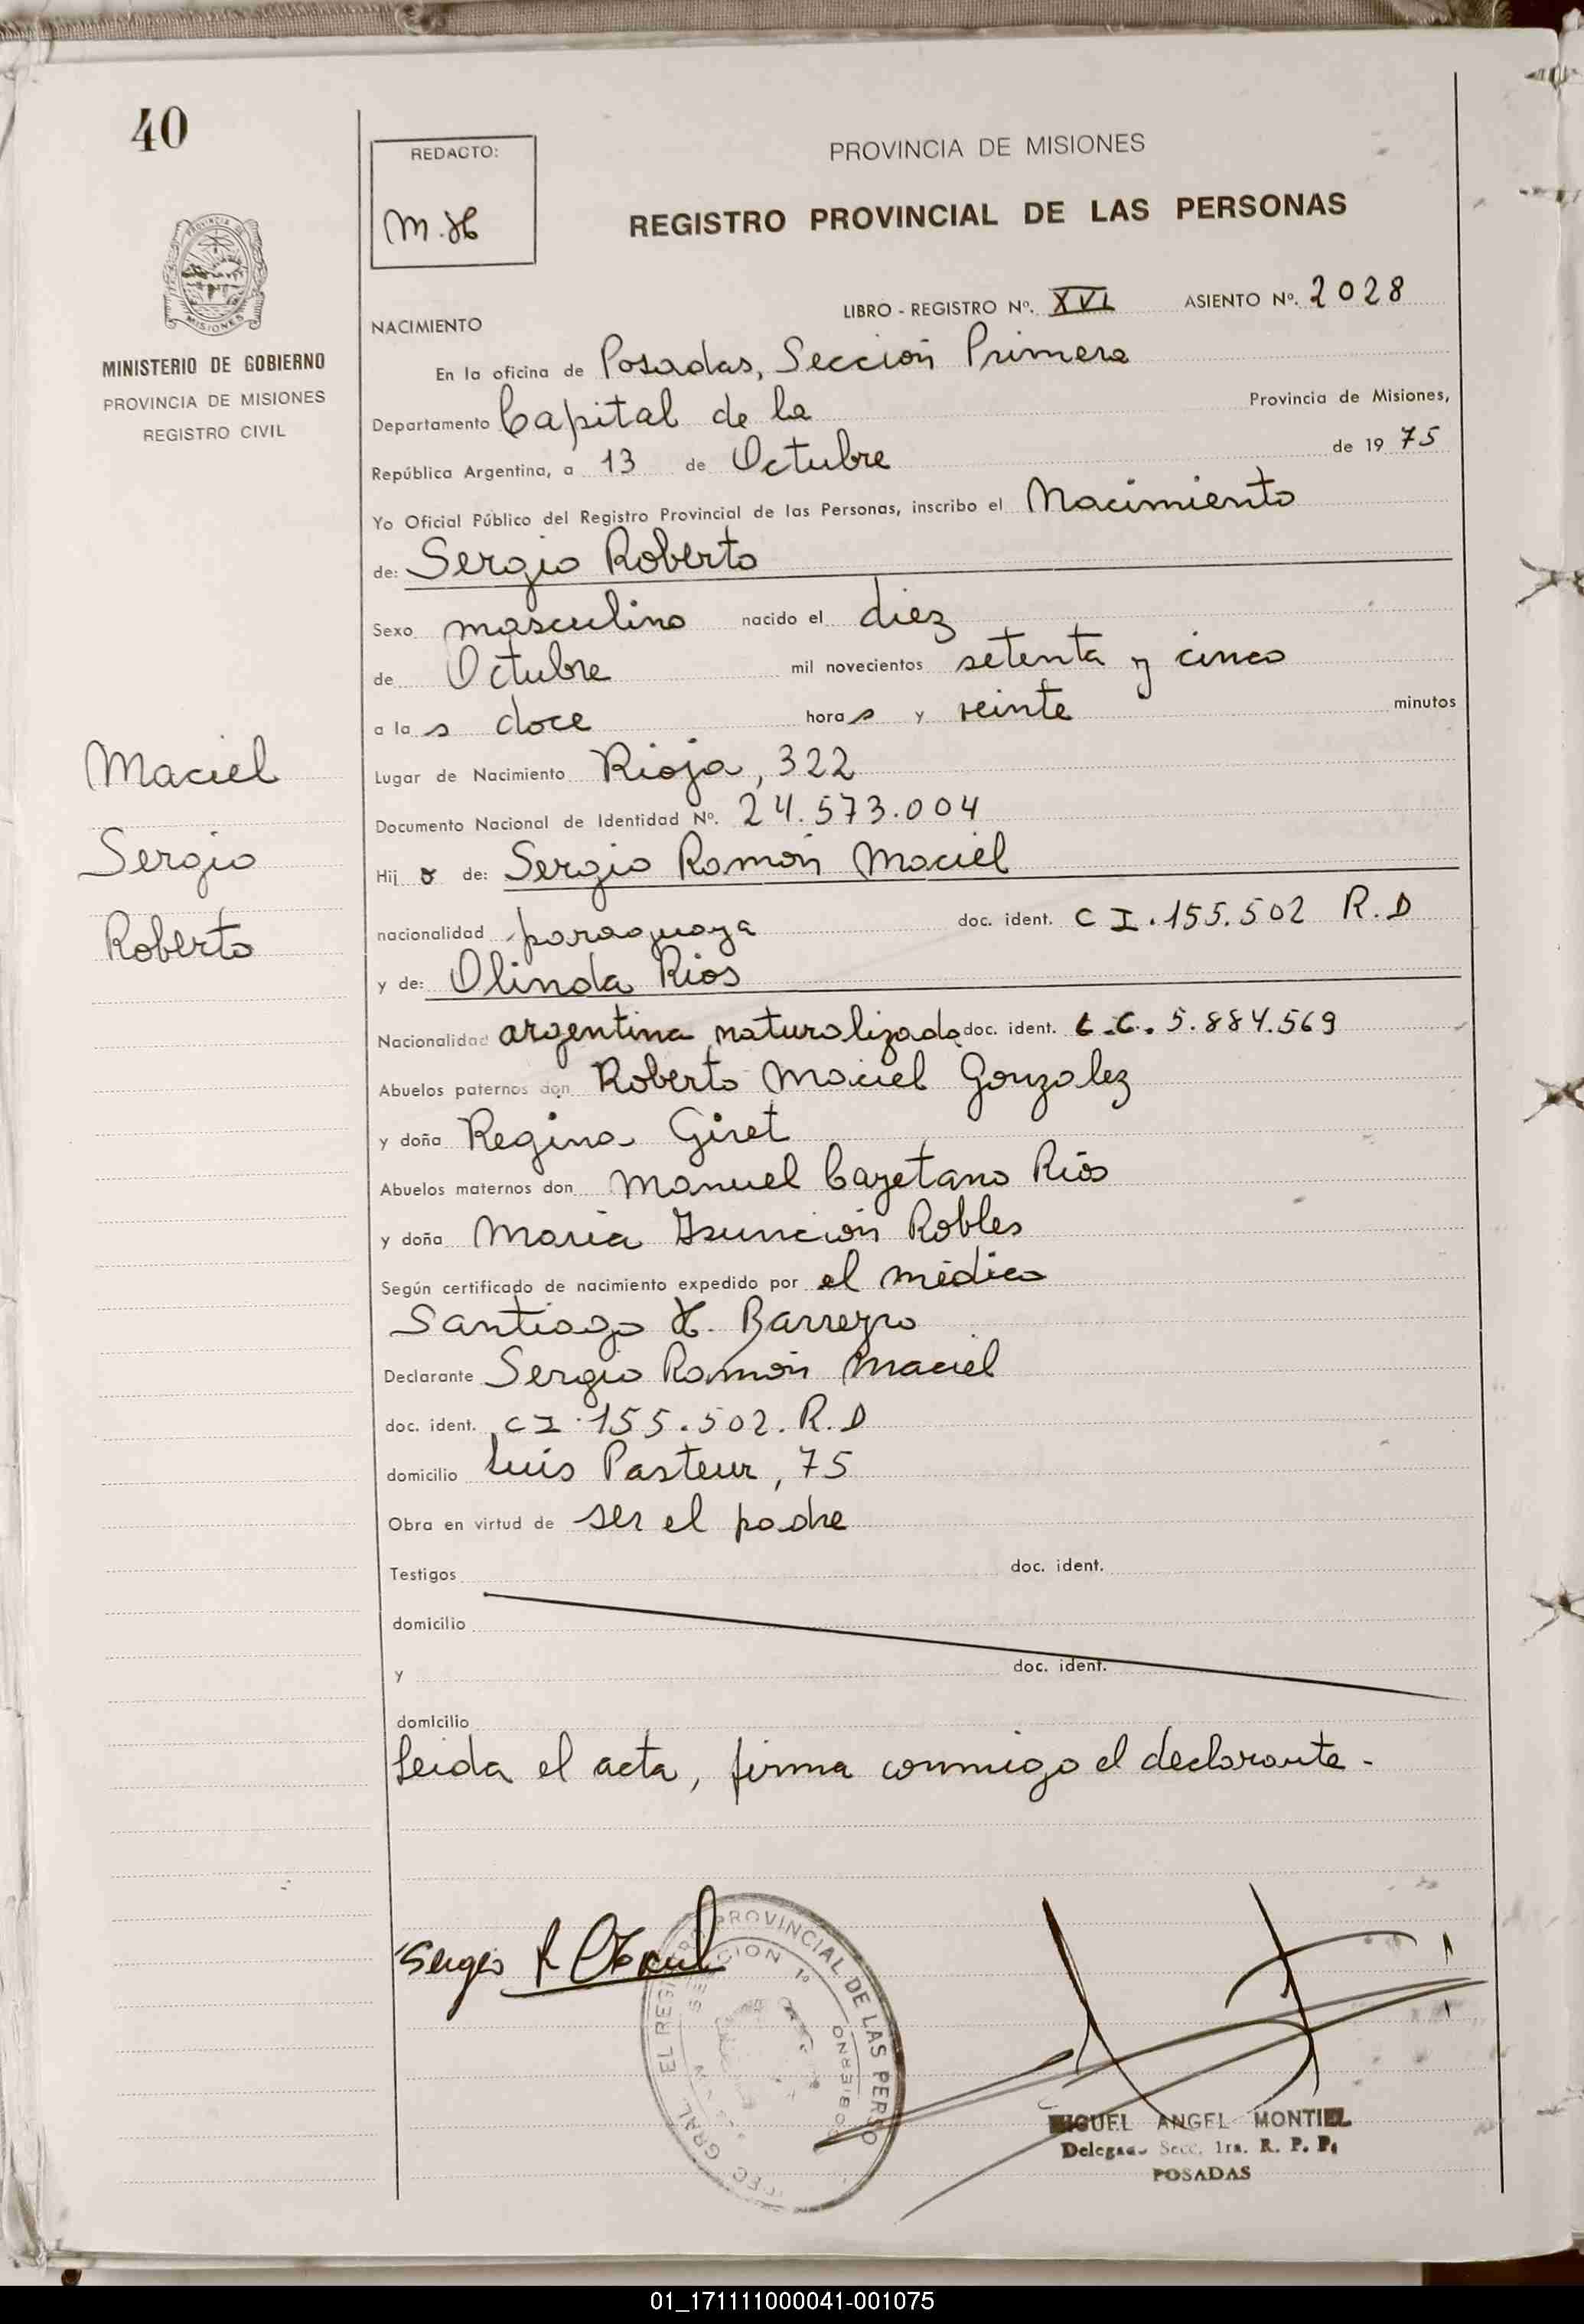 40
REDACTO:
M.H
PROVINCIA DE MISIONES
REGISTRO PROVINCIAL DE LAS PERSONAS
PROVINCIA
MISIONES
MINISTERIO DE GOBIERNO
PROVINCIA DE MISIONES
REGISTRO CIVIL
Maciel
Sergio
Roberto
LIBRO - REGISTRO Nº. XVI ASIENTO Nº. 2028
NACIMIENTO
En la oficina de Posadas, Sección Primera
Departamento Capital de la Provincia de Misiones,
República Argentina, a 13 de Octubre de 19 75
Yo Oficial Público del Registro Provincial de las Personas, inscribo el Nacimiento
de: Sergio Roberto
Sexo masculino nacido el diez
de Octubre mil novecientos setenta y cinco
a la s doce hora s y veinte minutos
Lugar de Nacimiento Rioja, 322
Documento Nacional de Identidad Nº. 24.573.004
Hij o de: Sergio Ramón Maciel
nacionalidad paraguaya doc. ident. C I. 155.502 R.D
y de: Olinda Rios
Nacionalidad argentina naturalizada doc. ident. L.C. 5.884.569
Abuelos paternos don Roberto Maciel Gonzalez
y doña Regina Giret
Abuelos maternos don Manuel Cayetano Rios
y doña Maria Asunción Robles
Según certificado de nacimiento expedido por el médico
Santiago H. Barreyro
Declarante Sergio Ramón Maciel
doc. ident. CI. 155.502. R.D
domicilio Luis Pasteur, 75
Obra en virtud de ser el padre
Testigos doc. ident.
domicilio
y doc. ident.
domicilio
Leida el acta, firma conmigo el declarante.-
Sergio R Maciel
PROVINCIAL DE LAS PERSO
EL REGI
SECCION 1º
GOBIERNO
GRAL
MIGUEL ANGEL MONTIEL
Delegado Secc. 1ra. R. P. P.
POSADAS
01_171111000041-001075